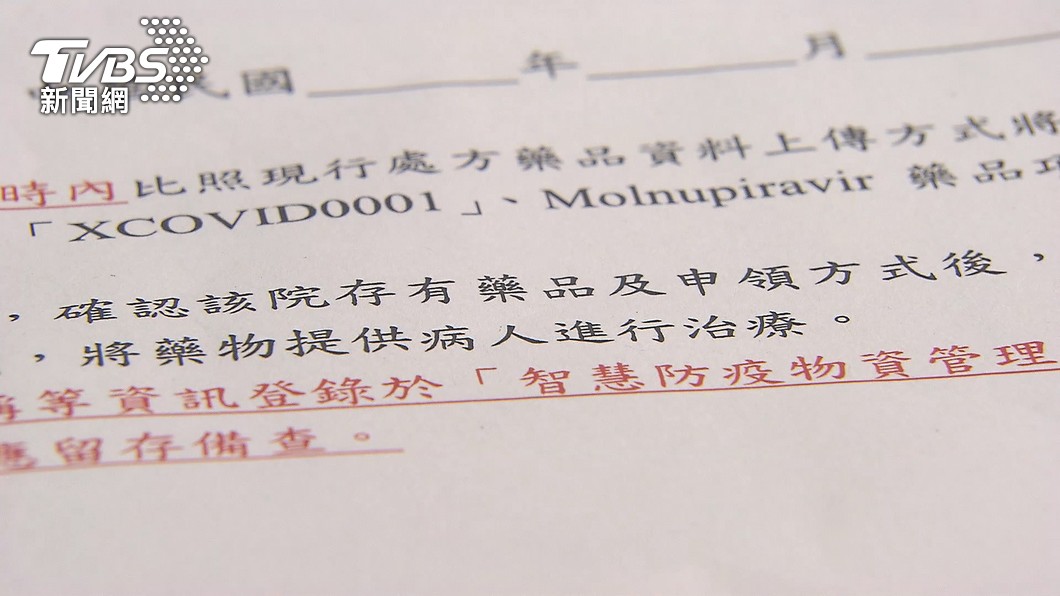 TVBS
新聞網
民國 年 月
時內比照現行處方藥品資料上傳方式將
「XCOVID0001」、Molnupiravir 藥品項
，確認該院存有藥品及申領方式後，
，將藥物提供病人進行治療。
等資訊登錄於「智慧防疫物資管理
應留存備查。